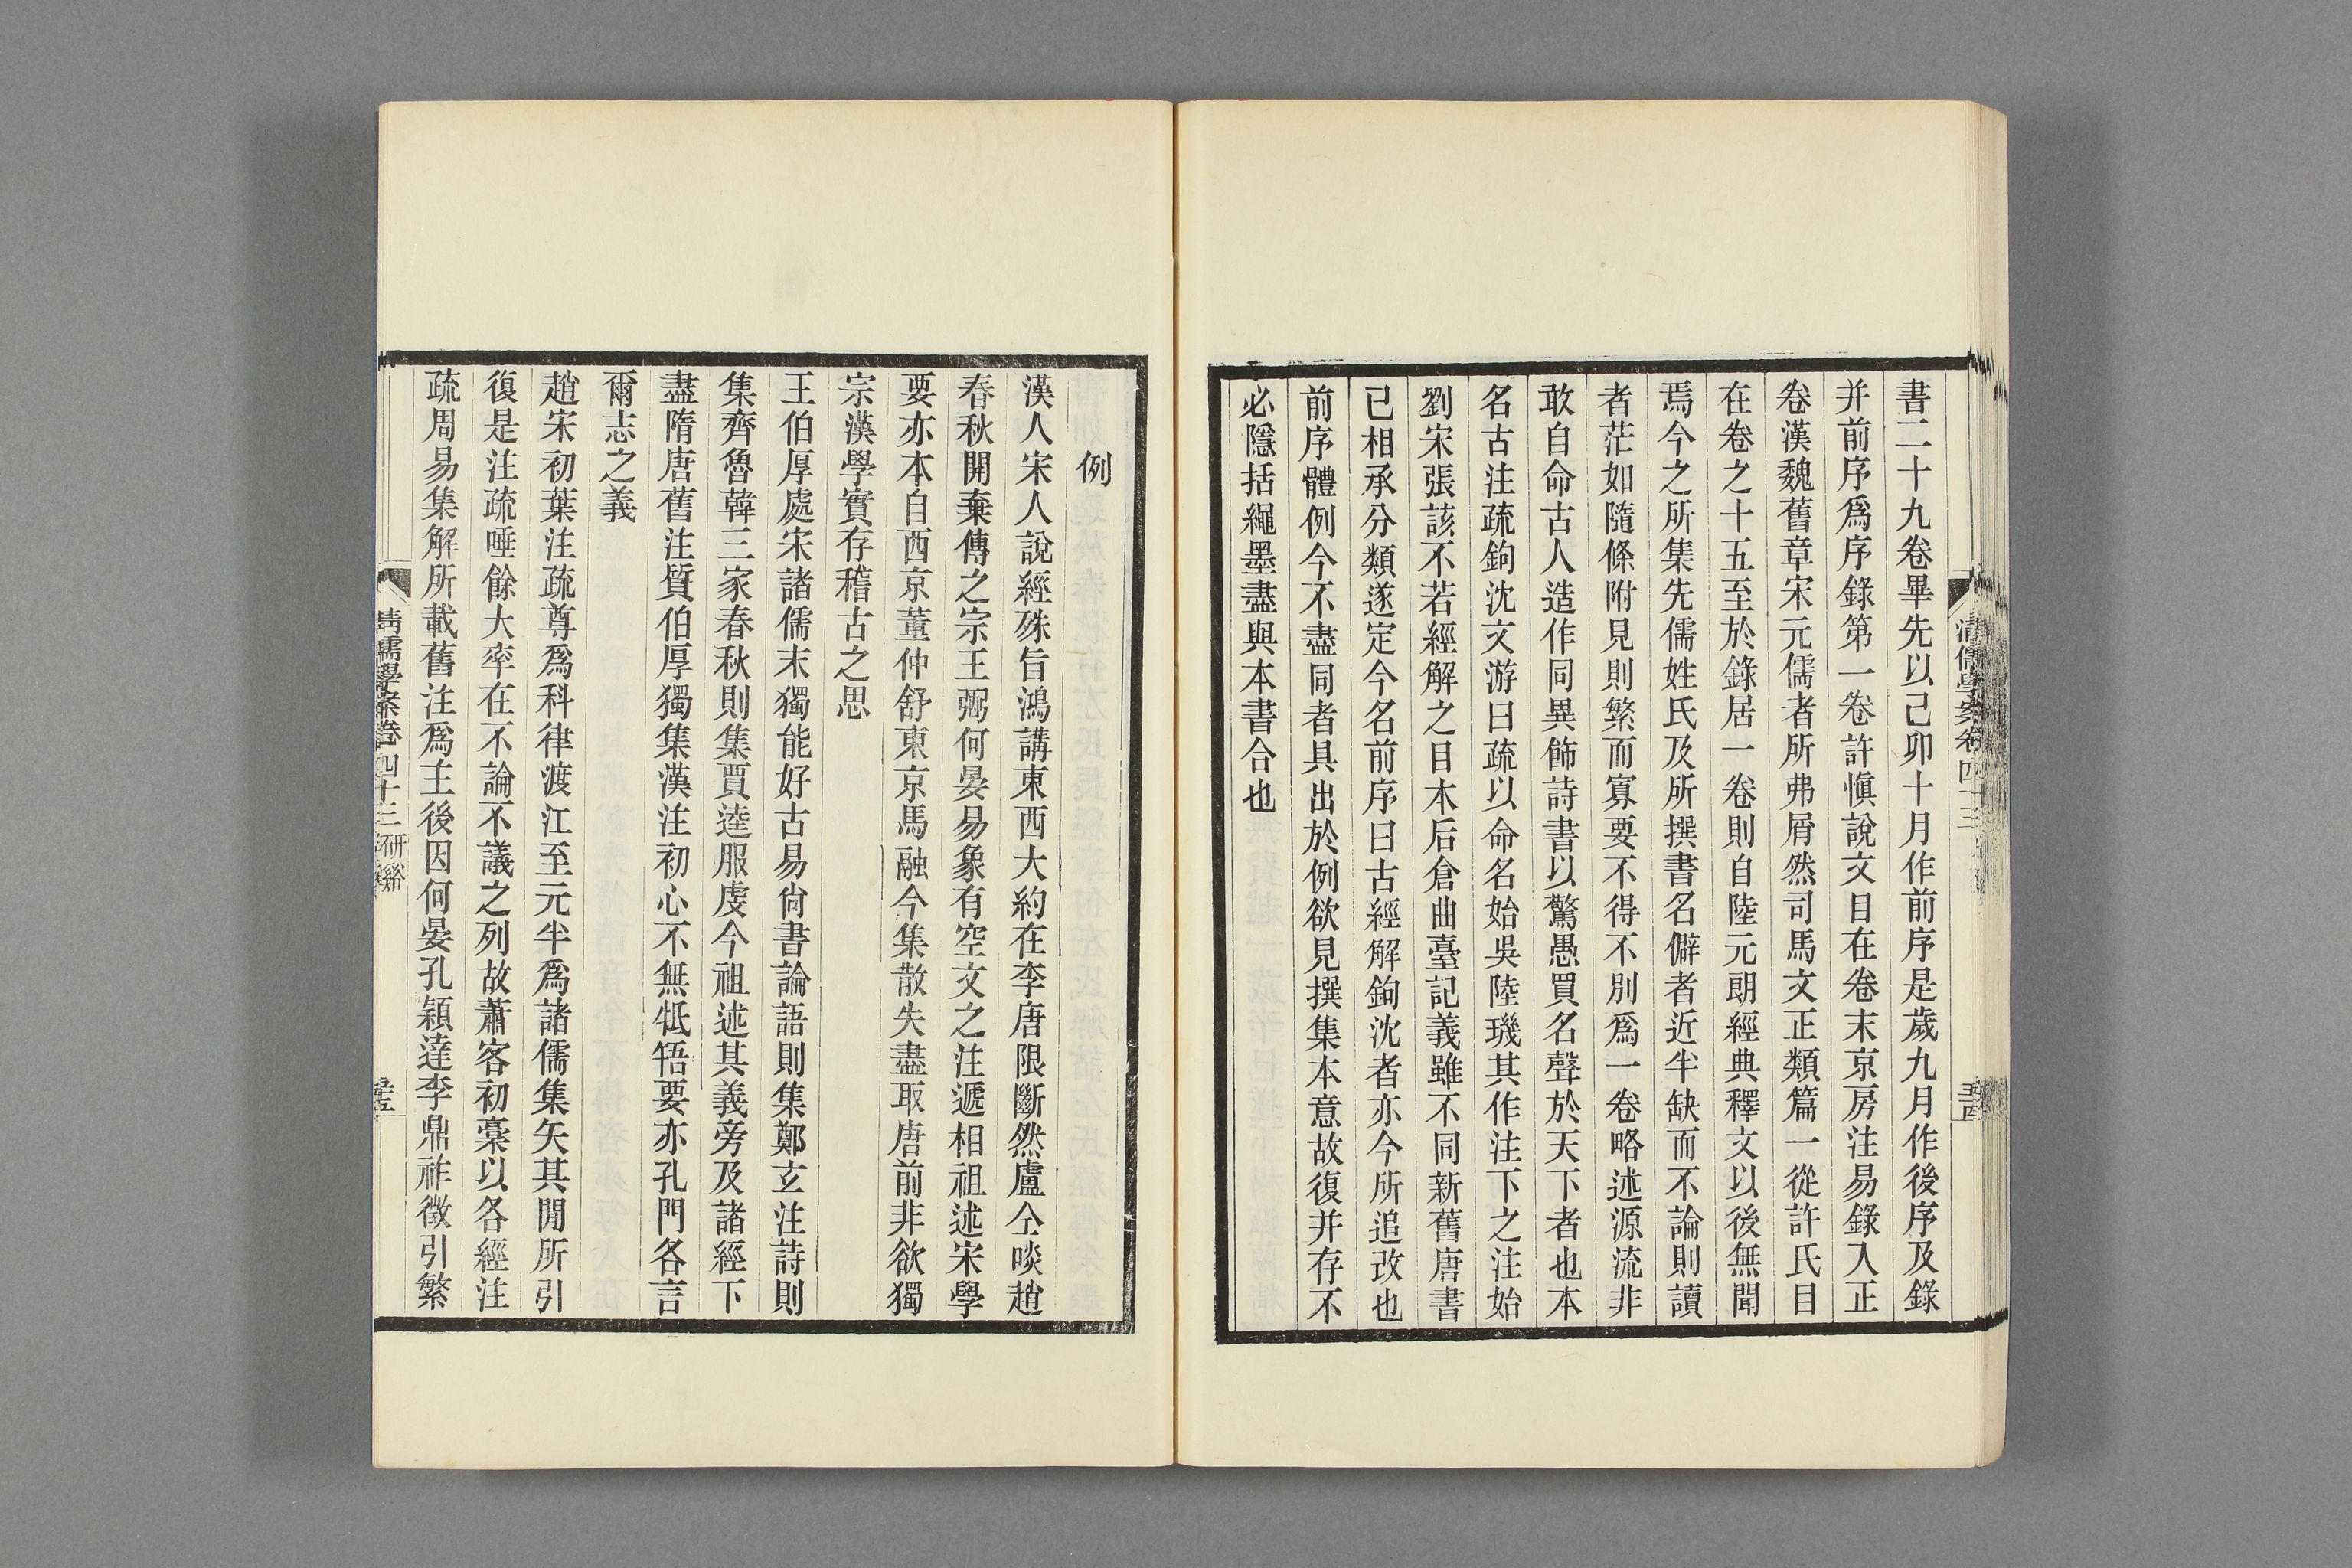 書二十九卷畢先以己卯十月作前序是歲九月作後序及錄
并前序爲序錄第一卷許愼說文目在卷末京房注易錄入正
卷漢魏舊章宋元儒者所弗屑然司馬文正類篇一從許氏目
在卷之十五至於錄居一卷則自陸元朗經典釋文以後無聞
焉今之所集先儒姓氏及所撰書名僻者近半缺而不論則讀
者茫如隨條附見則繁而寡要不得不別爲一卷略述源流非
敢自命古人造作同異飾詩書以驚愚買名聲於天下者也本
名古注疏鉤沈文游曰疏以命名始吳陸璣其作注下之注始
劉宋張該不若經解之目本后倉曲臺記義雖不同新舊唐書
已相承分類遂定今名前序曰古經解鉤沈者亦今所追改也
前序體例今不盡同者具出於例欲見撰集本意故復并存不
必隱括繩墨盡與本書合也
清儒學案卷四十三
例
漢人宋人說經殊旨鴻講東西大約在李唐限斷然盧仝啖趙
春秋開棄傳之宗王弼何晏易象有空文之注遞相祖述宋學
要亦本自西京董仲舒東京馬融今集散失盡取唐前非欲獨
宗漢學實存稽古之思
王伯厚處宋諸儒末獨能好古易尙書論語則集鄭玄注詩則
集齊魯韓三家春秋則集賈逵服虔今祖述其義旁及諸經下
盡隋唐舊注質伯厚獨集漢注初心不無牴牾要亦孔門各言
爾志之義
趙宋初葉注疏尊爲科律渡江至元半爲諸儒集矢其閒所引
復是注疏唾餘大率在不論不議之列故蕭客初稾以各經注
疏周易集解所載舊注爲主後因何晏孔穎達李鼎祚徵引繁
清儒學案卷四十三 研谿